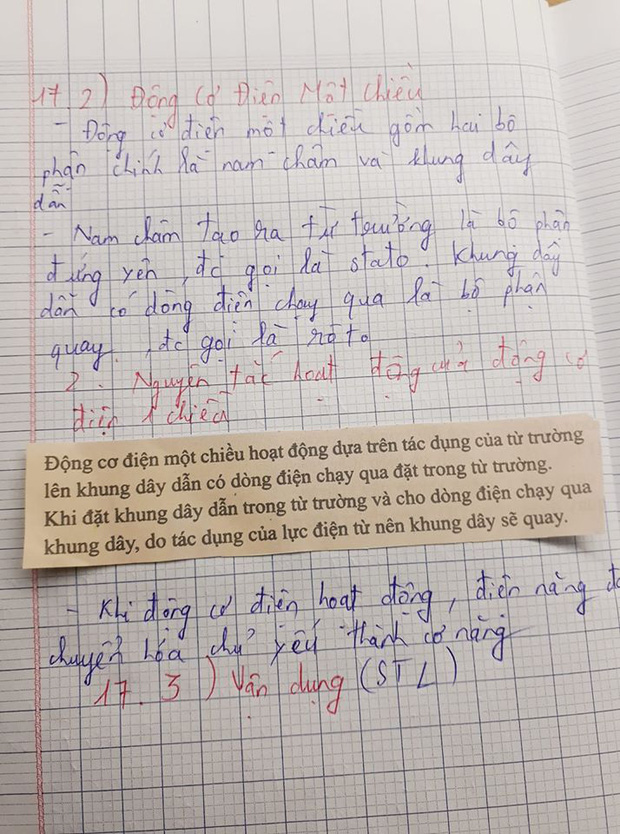 17.2) Động cơ Điện Một chiều
- Động cơ điện một chiều gồm hai bộ
phận chính là nam châm và khung dây
dẫn
- Nam châm tạo ra từ trường là bộ phận
đứng yên, đc gọi là stato. Khung dây
dẫn có dòng điện chạy qua là bộ phận
quay, đc gọi là rôto
2. Nguyên tắc hoạt động của động cơ
điện 1 chiều
Động cơ điện một chiều hoạt động dựa trên tác dụng của từ trường
lên khung dây dẫn có dòng điện chạy qua đặt trong từ trường.
Khi đặt khung dây dẫn trong từ trường và cho dòng điện chạy qua
khung dây, do tác dụng của lực điện từ nên khung dây sẽ quay.
- Khi động cơ điện hoạt động, điện năng
chuyển hóa chủ yếu thành cơ năng
17.3) Vận dụng (STL)